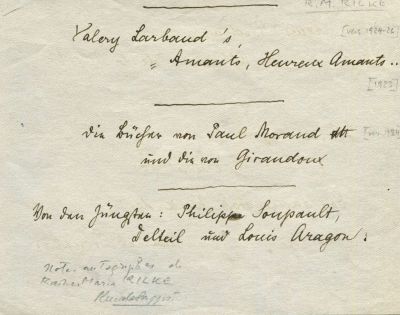 R.M. RILKE
Valery Larbaud's,
"Amants, Heureux Amants..
[1923]
die Bücher von Paul Morand
und die von Giraudoux
Von den Jüngsten: Philippe Soupault,
Delteil und Louis Aragon.
Notes autographes de
Rainer Maria RILKE